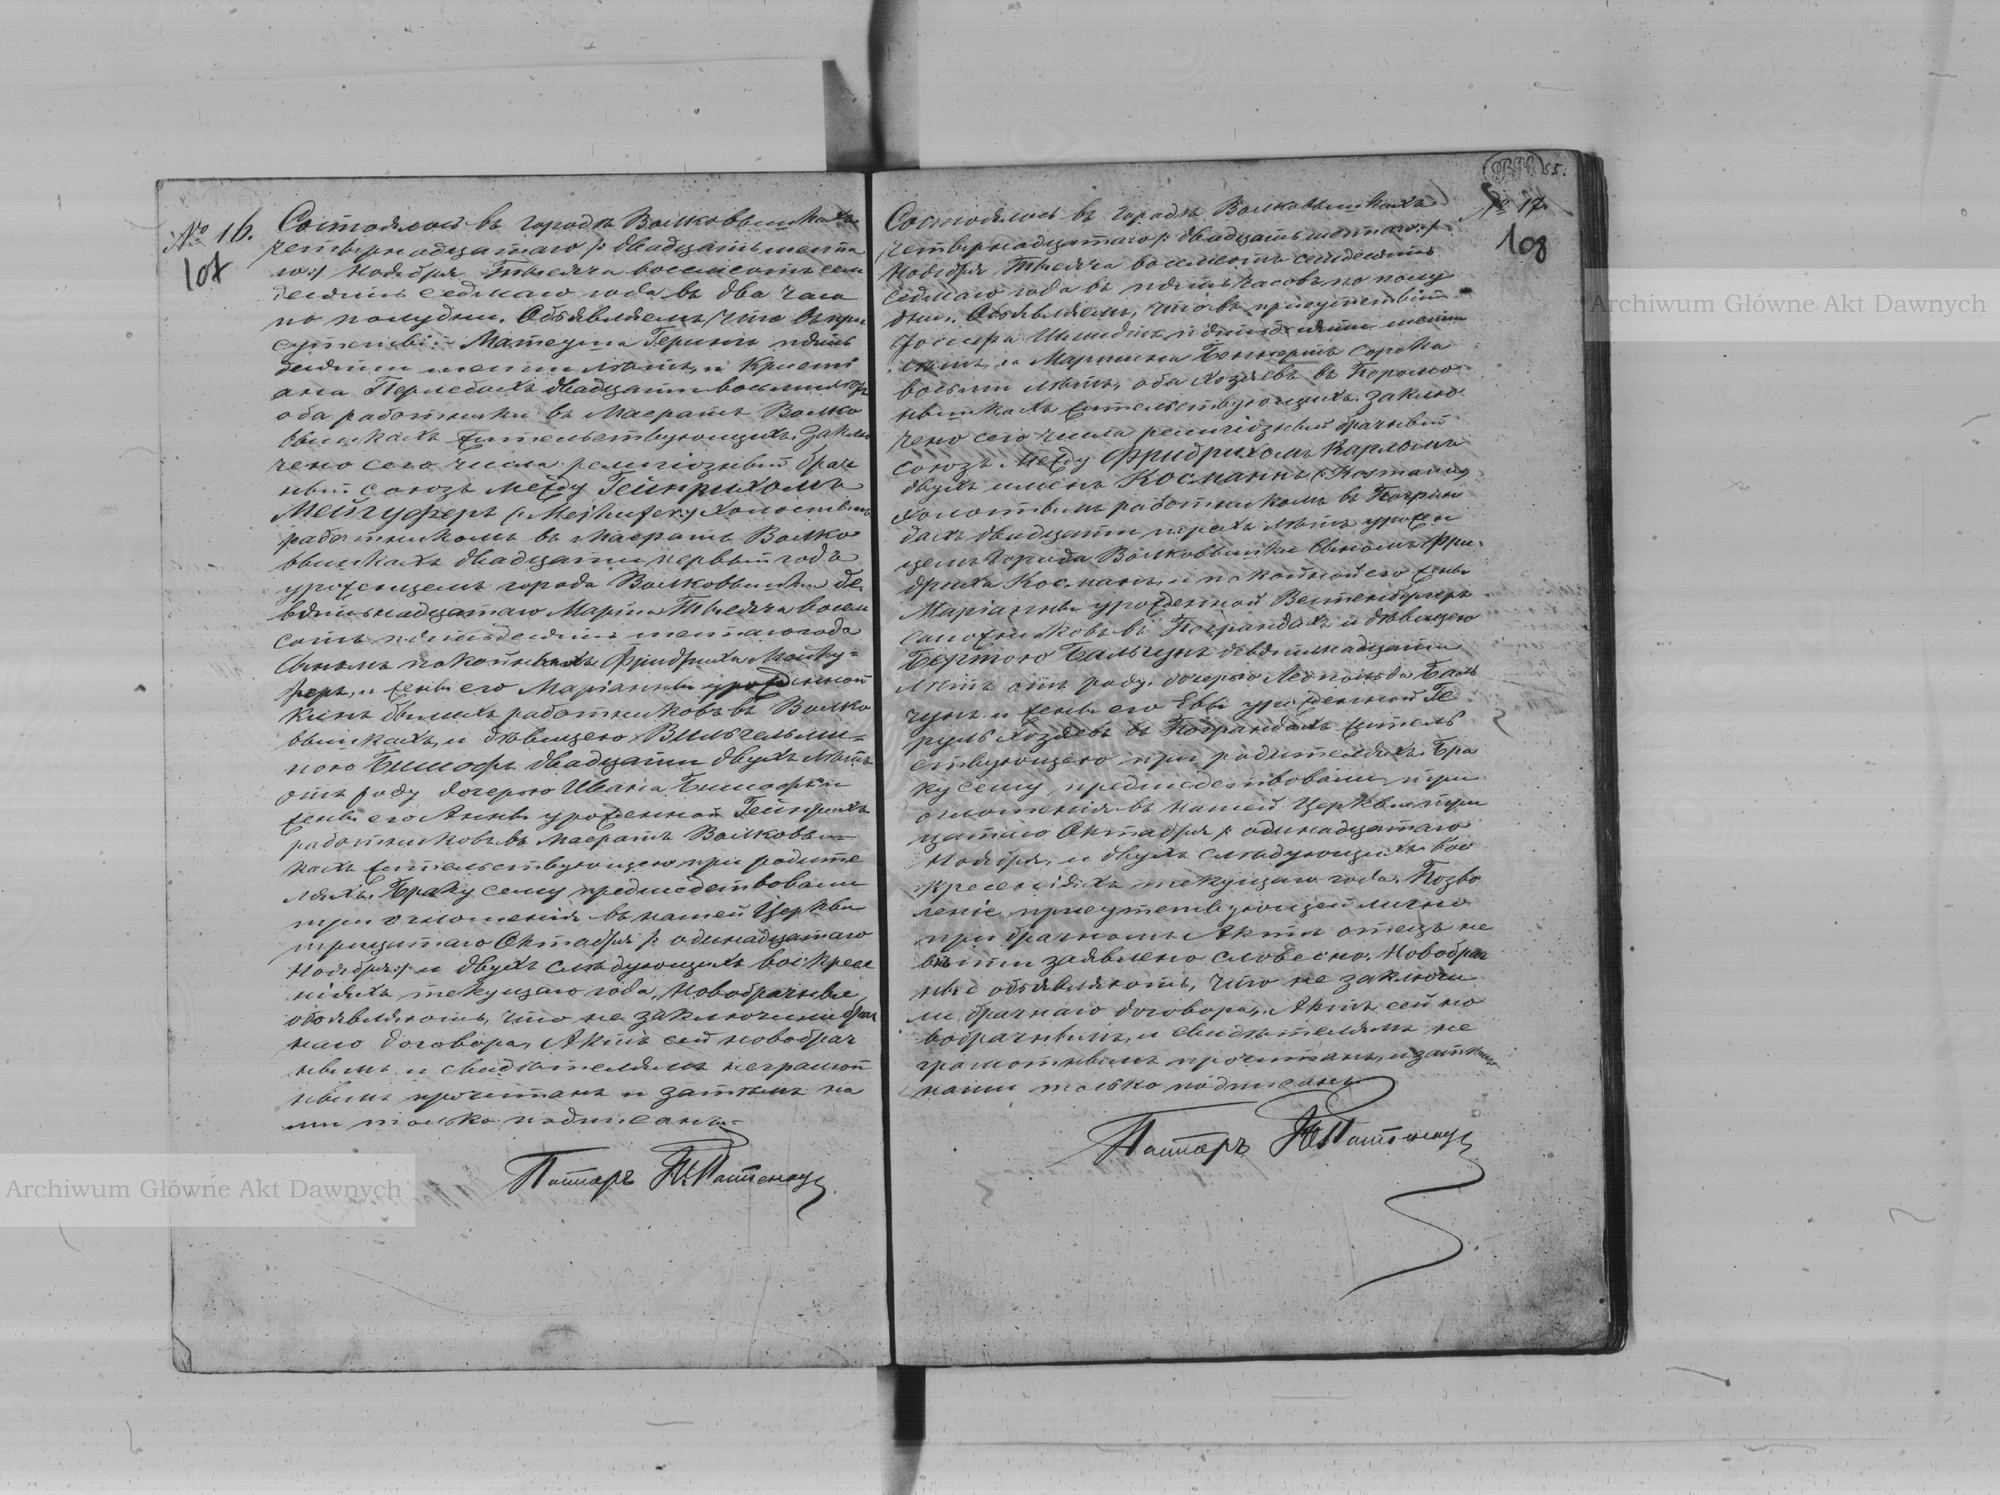 № 16.
107
Состоялось въ городѣ Волковышкахъ
четырнадцатаго /: двадцать шеста
го :/ Ноября Тысяча восемьсотъ семь
десятъ седьмаго года въ два часа
по полудни. Объявляемъ, что въ при
сутствіи Матеуша Геринъ пять
десяти шести лѣтъ, и Кристі
ана двадцати восьми лѣтъ
оба работники въ Маератѣ Волко
вышкахъ жительствующихъ. Заклю
чено сего числа религіозный брач
ный союзъ между Гейнрихомъ
Мейгуферъ (: Mejhufer :) холостымъ
работникомъ въ Маератѣ Волко
вышкахъ двадцати первый годъ
уроженцемъ города Волковышки де
вятьнадцатаго Марта Тысяча восемь
сотъ пятьдесятъ шестаго года
сыномъ покойныхъ Фридриха Мейгу=
феръ, и жены его Маріанны урожденной
Кинъ бывшихъ работниковъ въ Волко
вышкахъ, и дѣвицею Вильгельми=
ною Бишофъ двадцати двухъ лѣтъ
отъ роду дочерью Ивана Бишофъ и
жены его Анны урожденной Гейнрихъ
работниковъ въ Маератѣ Волковыш=
кахъ жительствующею при родите
ляхъ. Браку сему предшествовали
три оглошенія въ нашей Церкви
тридцатаго Октября /: одинадцатаго
Ноября :/ и двухъ слѣдующихъ воскресе
ніяхъ текущаго года. Новобрачные
объявляютъ, что не заключили брач
наго договора. Актъ сей новобрач
нымъ и свидѣтелямъ неграмот
нымъ прочитанъ и затѣмъ на
ми только подписанъ.=
Пасторъ
55.
№ 17.
108
Состоялось въ городѣ Волковышкахъ
четырнадцатаго /: двадцать шестаго :/
Ноября Тысяча восемьсотъ семьдесятъ
седьмаго года въ пять часовъ по полу
дни. Объявляемъ, что въ присутствіи
Шмидтъ пятидесяти шести
лѣтъ, и Мартина сорока
восьми лѣтъ, оба хозяевъ въ
жительствующихъ. Заклю
чено сего числа религіозный брачный
союзъ между Фридрихомъ Карломъ
двухъ именъ Косманнъ (: Kosmann :)
холостымъ работникомъ въ Погран
дахъ двадцати трехъ лѣтъ урожен
цемъ города Волковышки сыномъ Фри
дриха Косманъ, и покойной его жены
Маріанны урожденной
въ Пограндахъ, и дѣвицею
Бертою Бальчунъ девятьнадцати
лѣтъ отъ роду, дочерью Леопольда Баль
чунъ и жены его Евы урожденной Ге
руль хозяевъ въ Пограндахъ житель
ствующею при родителяхъ. Бра
ку сему предшествовали три
оглошенія въ нашей Церкви три
цатаго Октября /: одинадцатаго
Ноября, и двухъ слѣдующихъ вос
кресеніяхъ текущаго года. Позво
леніе присутствующей лично
при брачномъ Актѣ отецъ не
вѣсти заявлено словесно. Новобрач
ные объявляютъ, что не заключи
ли брачнаго договора. Актъ сей но
вобрачнымъ, и свидѣтелямъ не
грамотнымъ прочитанъ, и затѣмъ
нами только подписанъ.
Пасторъ
Archiwum Główne Akt Dawnych
Archiwum Główne Akt Dawnych